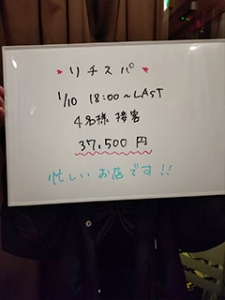 ★リチスパ★
1/10 18:00~LAST
4名様 接客
37,500 円
忙しいお店です!!